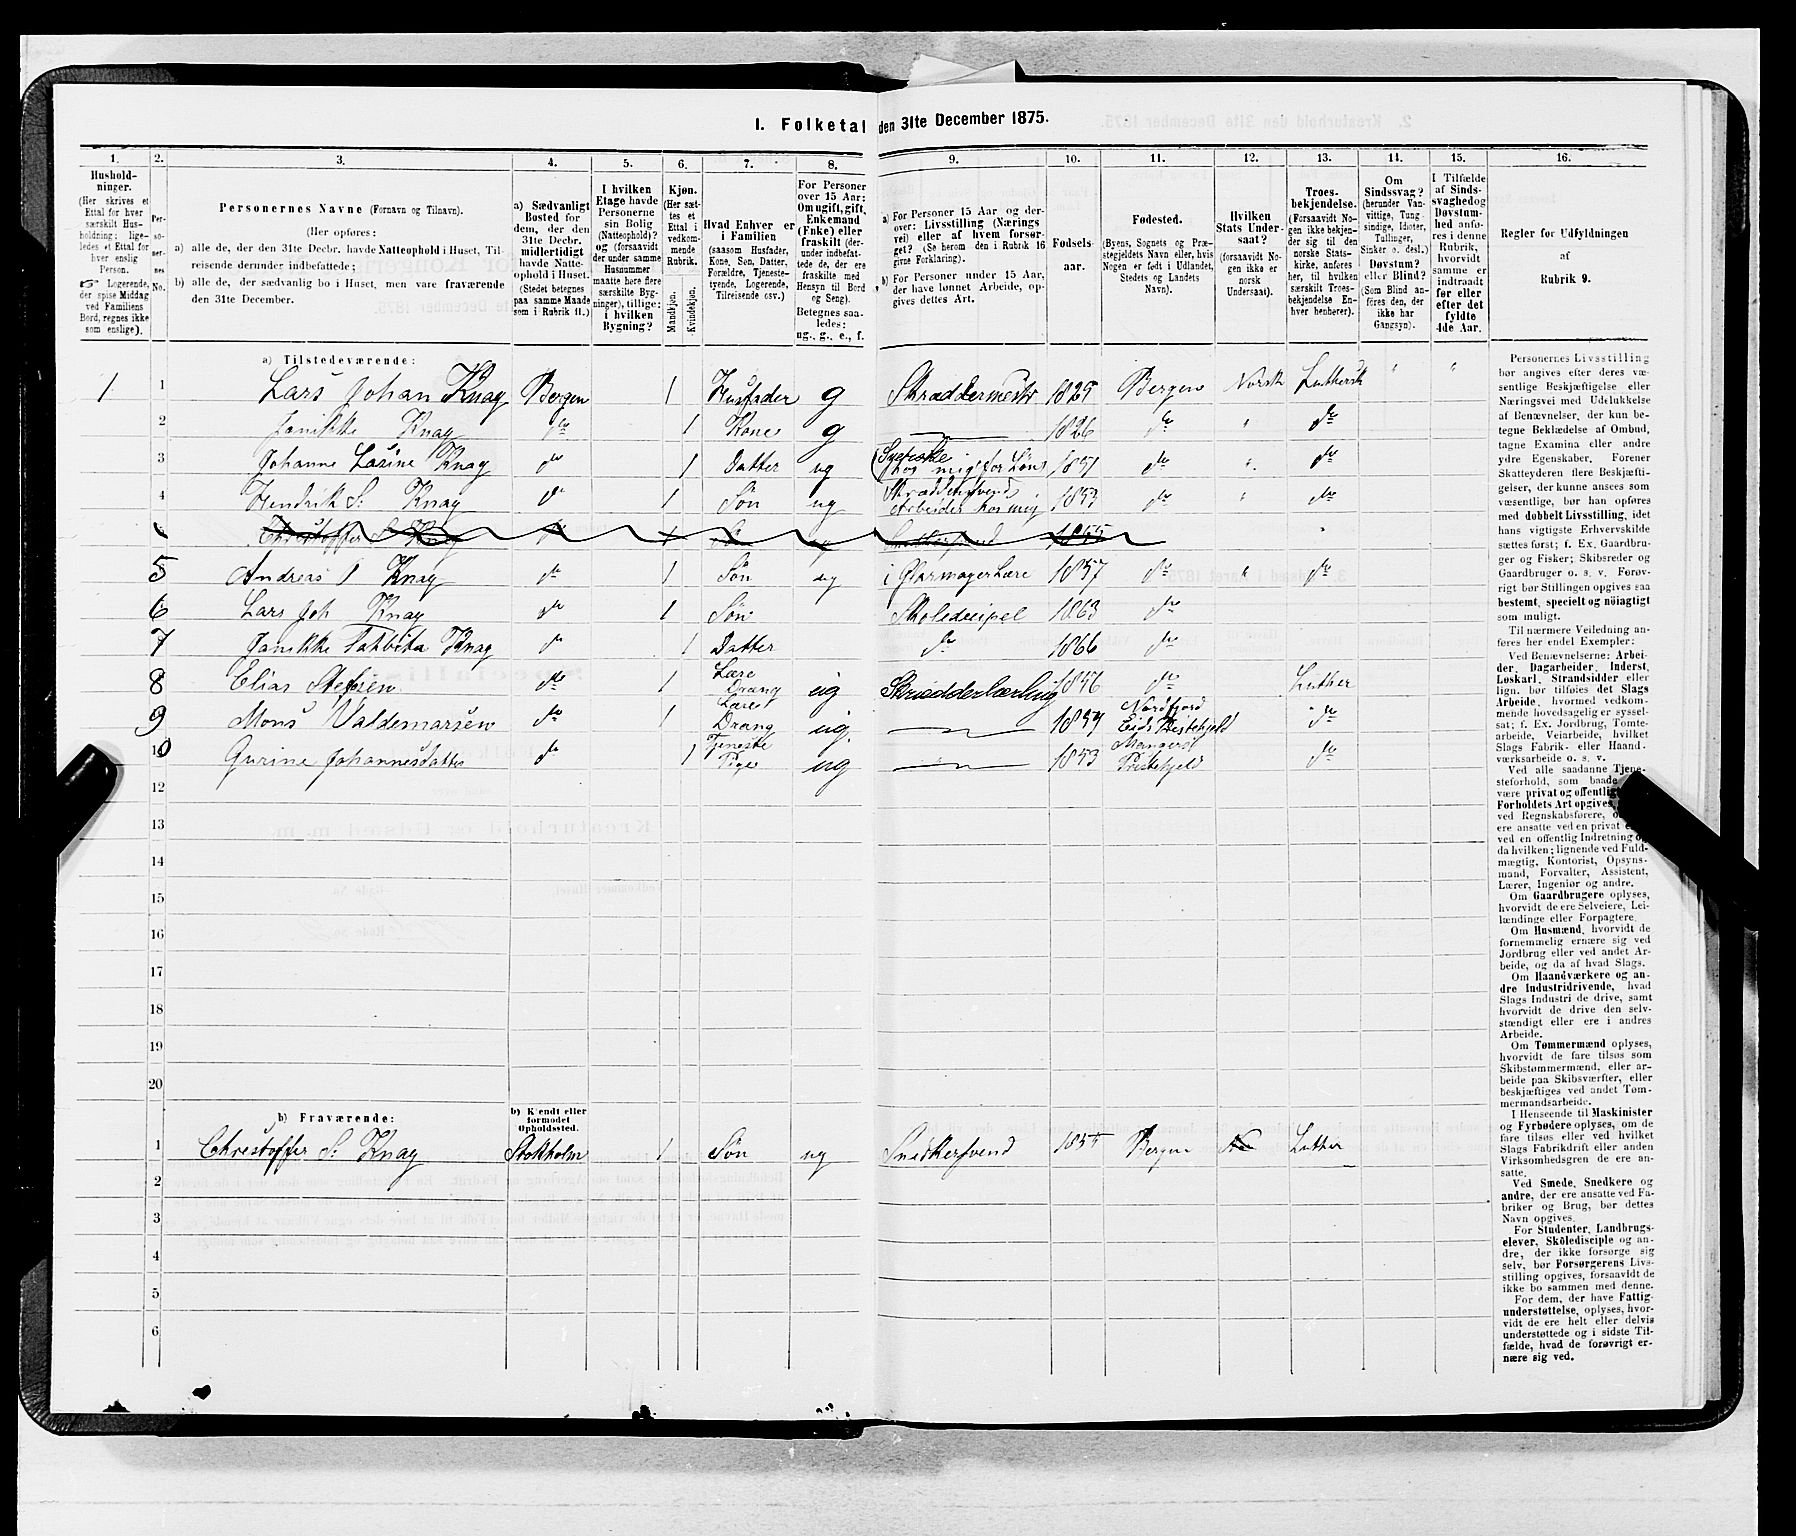 I. Folketal den 31te December 1875.
1.
2.
3.
4.
5.
6.
7.
8.
9.
10.
11.
12.
13.
14.
15.
16.
Hushold-
ninger.
(Her skrives et
Ettal for hver
særskilt Hus-
holdning; lige-
ledes et Ettal for
hver enslig
Person.
Logerende,
der spise Middag
ved Familiens
Bord, regnes ikke
som enslige).
Per-
so-
ner-
nes
No.
Personernes Navne (Fornavn og Tilnavn).
(Her opføres:
a) alle de, der den 31te Decbr. havde Natteophold i Huset, Til-
reisende derunder indbefattede;
b) alle de, der sædvanlig bo i Huset, men vare fraværende
den 31te December.
a) Sædvanligt
Bosted for
dem, der den
31te Decbr.
midlertidigt
havde Natte-
ophold i Huset.
(Stedet betegnes
paa samme Maade
som i Rubrik 11.)
I hvilken
Etage havde
Personerne
sin Bolig
(Natteophold)?
og (forsaavidt
der under samme
Husnummer
maatte høre flere
særskilte Byg-
ninger), tillige:
i hvilken
Bygning?
Kjøn.
(Her sæt-
tes et
Ettal i
vedkom-
mende
Rubrik.
Mandkjøn.
Kvindekjøn.
Hvad Enhver er
i Familien
(saasom Husfader,
Kone, Søn, Datter,
Forældre, Tjeneste-
tyende, Logerende,
Tilreisende osv.)
For Personer
over 15 Aar:
Om ugift, gift,
Enkemand
(Enke) eller
fraskilt (der-
under indbefat-
tede de, der ere
fraskilte med
Hensyn til Bord
og Seng).
Betegnes saa-
ledes:
ug., g., e., f.
a) For Personer 15 Aar og der-
over: Livsstilling (Nærings-
vei) eller af hvem forsør-
get? (Se herom den i Rubrik 16
givne Forklaring).
b) For Personer under 15 Aar,
der have lønnet Arbeide, op-
gives dettes Art.
Fødsels-
aar.
Fødested.
(Byens, Sognets og Præ-
stegjeldets Navn eller, hvis
Nogen er født i Udlandet,
Stedets og Landets
Navn).
Hvilken
Stats Under-
saat?
(forsaavidt No-
gen ikke er
norsk
Undersaat).
Troes-
bekjendelse.
(Forsaavidt No-
gen ikke bekjen-
der sig til den
norske Stats-
kirke, anføres
her, til hvilken
særskilt Troes-
bekjendelse En-
hver henhører).
Om
Sindssvag?
(herunder Van-
vittige, Tung-
sindige, Idioter,
Tullinger,
Sinker o. desl.)
Døvstum?
eller Blind?
(Som Blind an-
føres den, der
ikke har
Gangsyn).
I Tilfælde
af Sinds-
svaghed og
Døvstum-
hed anfø-
res i denne
Rubrik,
hvorvidt
samme er
indtraadt
før eller
efter det
fyldte
4de Aar.
Regler for Udfyldningen
af
Rubrik 9.
a) Tilstedeværende:
1 1 Lars Johan Knag Bergen 1 Husfader g Skræddermester 1825 Bergen Norsk Luthersk " "
2 Janikke Knag do 1 Kone g — 1826 do " do
3 Johanne Larine Knag do 1 Datter ug Syerske hos mig for Løn 1851 do " do
4 Hendrik S: Knag do 1 Søn ug Skræddersvend Arbeider hos mig 1853 do " do
Christoffer S Knag 1 1855
5 Andreas J Knag do 1 Søn ug i Garmager Lære 1857 do " do
6 Lars Joh Knag do 1 Søn Skoledicipel 1863 do
7 Janikke Tahbita Knag do 1 Datter do 1866 do
8 Elias Steffsen do 1 Lære Dræng ug Skrædderlærling 1856 do Luther
9 Mons Valdemarsen do 1 Lære Dræng ug. — 1859 Nordfjord Eids Prestehjeld do
10 Gurine Johannesdatter do 1 Tjeneste Pige ug — 1853 Mangers Prestehjeld do
12
13
14
15
16
17
18
19
20
b) Fraværende:
b) Kjendt eller
formodet
Opholdssted.
1 Christoffer S. Knag Stokholm 1 Søn ug Snedkersvend 1855 Bergen No Luther
2
3
4
5
6
Personernes Livsstilling
bør angives efter deres væ-
sentlige Beskjæftigelse eller
Næringsvei med Udelukkelse
af Benævnelser, der kun be-
tegne Beklædelse af Ombud,
tagne Examina eller andre
ydre Egenskaber. Forener
Skatteyderen flere Beskjæfti-
gelser, der kunne ansees som
væsentlige, bør han opføres
med dobbelt Livsstilling, idet
hans vigtigste Erhvervskilde
sættes først; f. Ex. Gaardbru-
ger og Fisker; Skibsreder og
Gaardbruger o. s. v. Forøv-
rigt bør Stillingen opgives saa
bestemt, specielt og nöiagtigt
som muligt.
Til nærmere Veiledning an-
føres her endel Exempler:
Ved Benævnelserne: Arbei-
der, Dagarbeider, Inderst,
Løskarl, Strandsidder eller
lign. bør tilføies det Slags
Arbeide, hvormed vedkom-
mende hovedsagelig er syssel-
sat; f. Ex. Jordbrug, Tomte-
arbeide, Veiarbeide, hvilket
Slags Fabrik- eller Haand-
værksarbeide o. s. v.
Ved alle saadanne Tjene-
steforhold, som baade
være privat og offentlig
Forholdets Art opgives,
ved Regnskabsførere,
ere ansatte ved en privat
ved en offentlig Indretning
da hvilken; lignende ved Fuld-
mægtig, Kontorist, Opsyns-
mand, Forvalter, Assistent,
Lærer, Ingeniør og andre.
Om Gaardbrugere oplyses,
hvorvidt de ere Selveiere, Lei-
lændinge eller Forpagtere.
Om Husmænd, hvorvidt de
fornemmelig ernære sig ved
Jordbrug eller ved andet Ar-
beide, og da af hvad Slags.
Om Haandværkere og an-
dre Industridrivende, hvad
Slags Industri de drive, samt
hvorvidt de drive den selv-
stændigt eller ere i andres
Arbeide.
Om Tømmermænd oplyses,
hvorvidt de fare tilsøs som
Skibstømmermænd, eller ar-
beide paa Skibsværfter, eller
beskjæftiges ved andet Tøm-
mermandsarbeide.
I Henseende til Maskinister
og Fyrbødere oplyses, om de
fare tilsøs eller ved hvilket
Slags Fabrikdrift eller anden
Virksomhedsgren de ere an-
satte.
Ved Smede, Snedkere og
andre, der ere ansatte ved Fa-
briker og Brug, bør dettes
Navn opgives.
For Studenter, Landbrugs-
elever, Skoledisciple og an-
dre, der ikke forsørge sig
selv, bør Forsørgerens Livs-
stilling opgives, forsaavidt de
ikke bo sammen med denne.
For dem, der have Fattig-
understøttelse, oplyses, hvor-
vidt de ere helt eller delvis
understøttede og i sidste Til-
fælde, hvad de forøvrigt er-
nære sig ved.